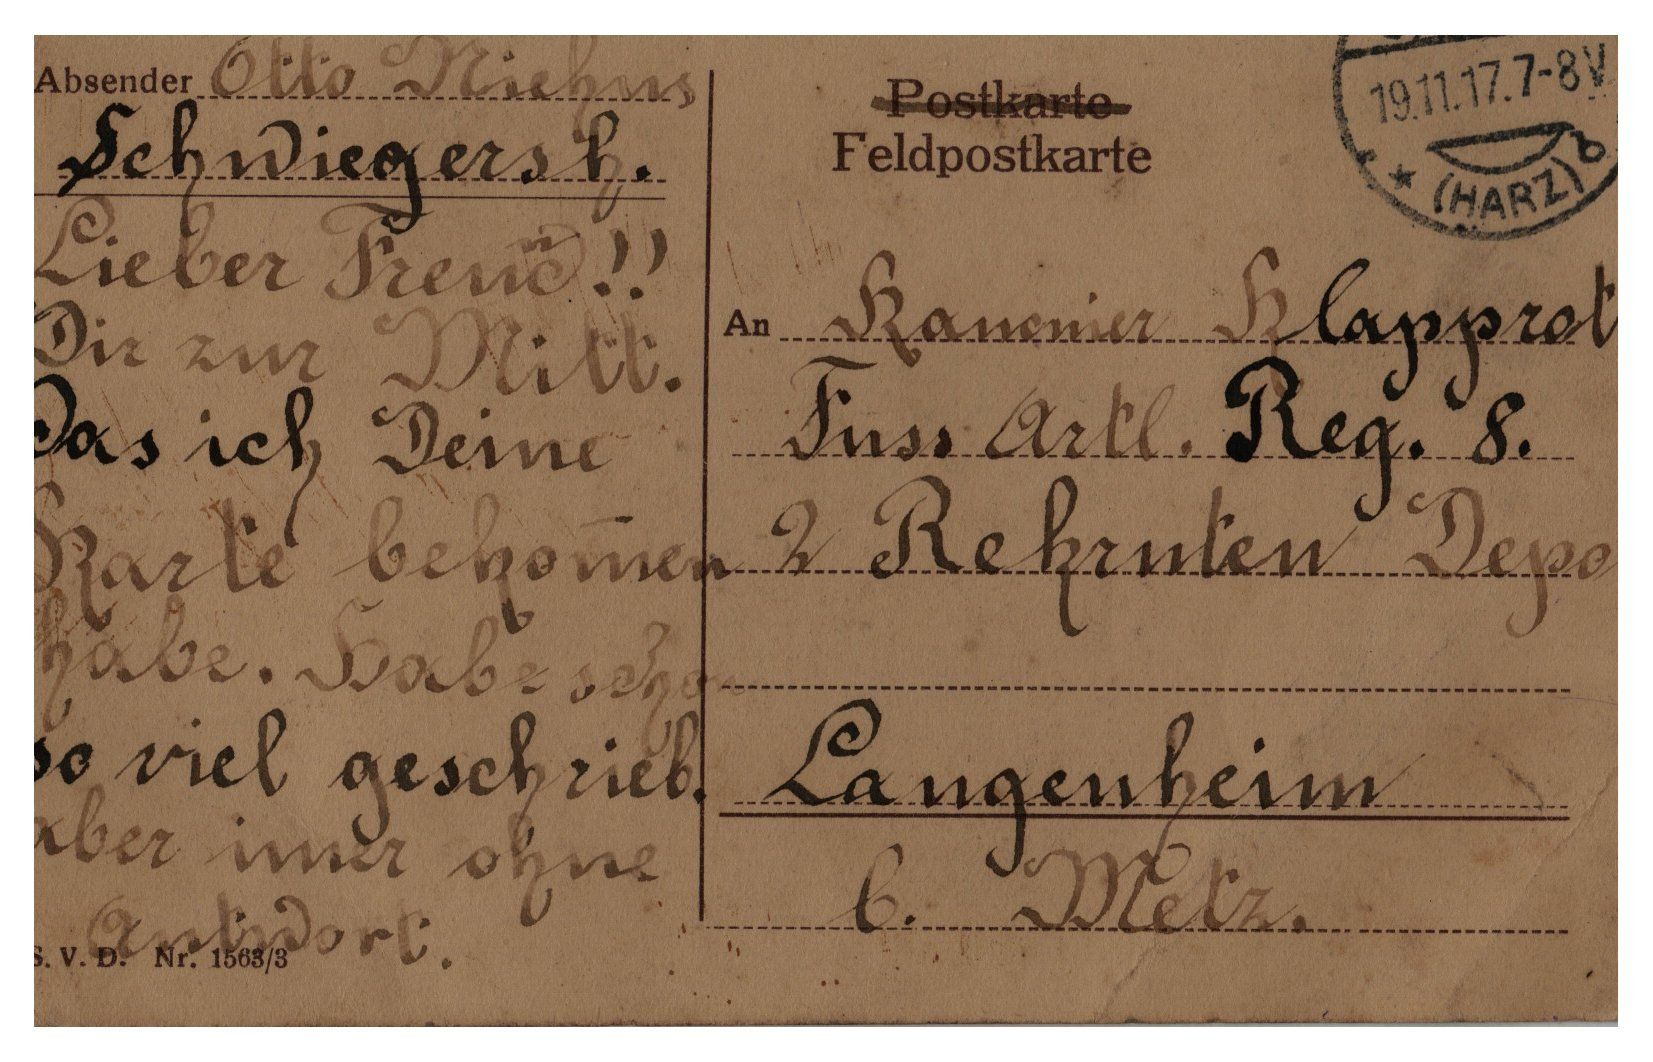 Absender Otto Niehus
Schwiegersh.
Lieber Freund!!
Dir zur Mitt.
Das ich Deine
Karte bekom̅en
habe. Habe schon
so viel geschrieb.
aber imer ohne
Antwort.
S. V. D. Nr. 1563/3
Postkarte
Feldpostkarte
19.11.17. 7-8 V
* (HARZ) b
An Kanonier Klapprot
Fuss Artl. Reg. 8.
2 Rekruten Depo
Langenheim
b. Metz.